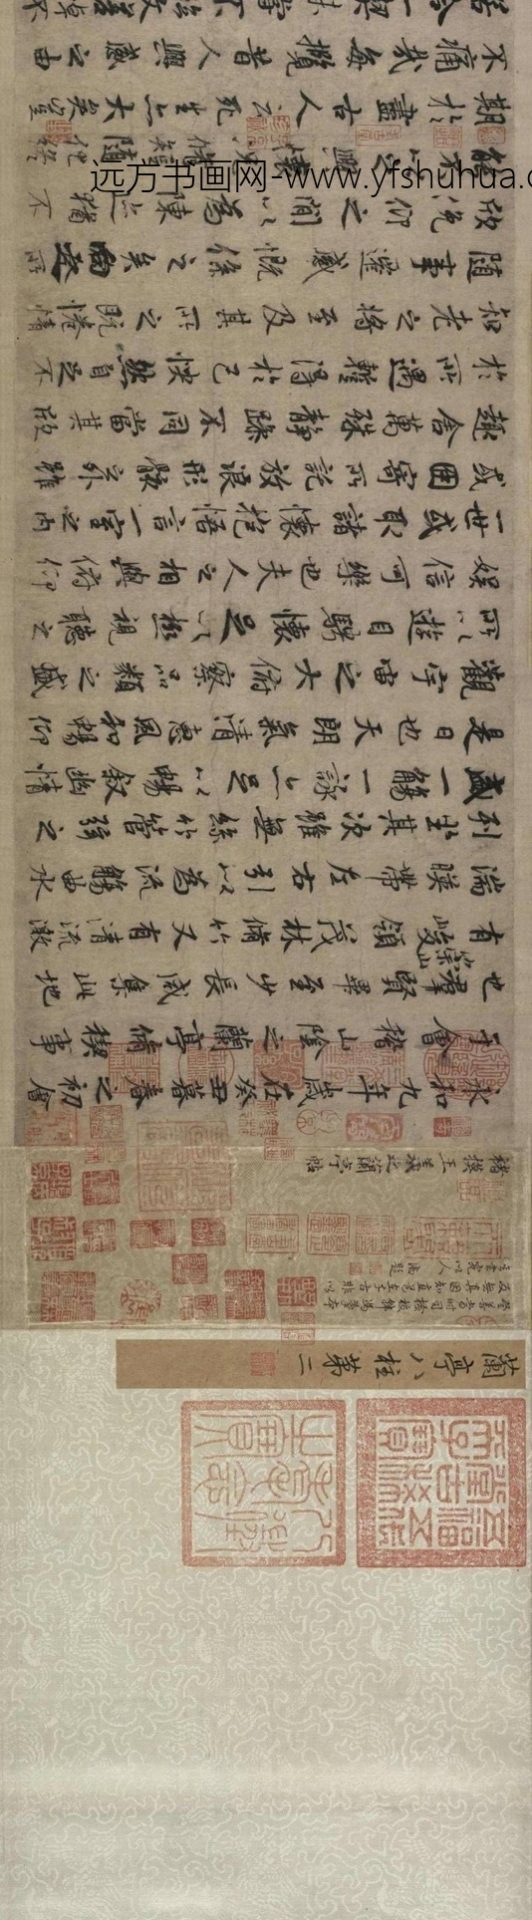 八徵耄念之寶
五福五代堂古稀天子寶
蘭亭八柱第二
褚摸王羲之蘭亭帖
永和九年歲在癸丑暮春之初會
于會稽山陰之蘭亭脩稧事
也羣賢畢至少長咸集此地
有崇山峻領茂林脩竹又有清流激
湍暎帶左右引以為流觴曲水
列坐其次雖無絲竹管弦之
盛一觴一詠亦足以暢敘幽情
是日也天朗氣清惠風和暢仰
觀宇宙之大俯察品類之盛
所以遊目騁懷足以極視聽之
娛信可樂也夫人之相與俯仰
一世或取諸懷抱悟言一室之內
或因寄所託放浪形骸之外雖
趣舍萬殊靜躁不同當其欣
於所遇暫得於己怏然自足不
知老之將至及其所之既惓情
隨事遷感慨係之矣向之所
欣俛仰之間以為陳迹猶不
能不以之興懷脩短隨化終
期於盡古人云死生亦大矣豈
不痛哉每攬昔人興感之由
若合一契未嘗不臨文嗟悼不
远方书画网-www.yfshuhua.c